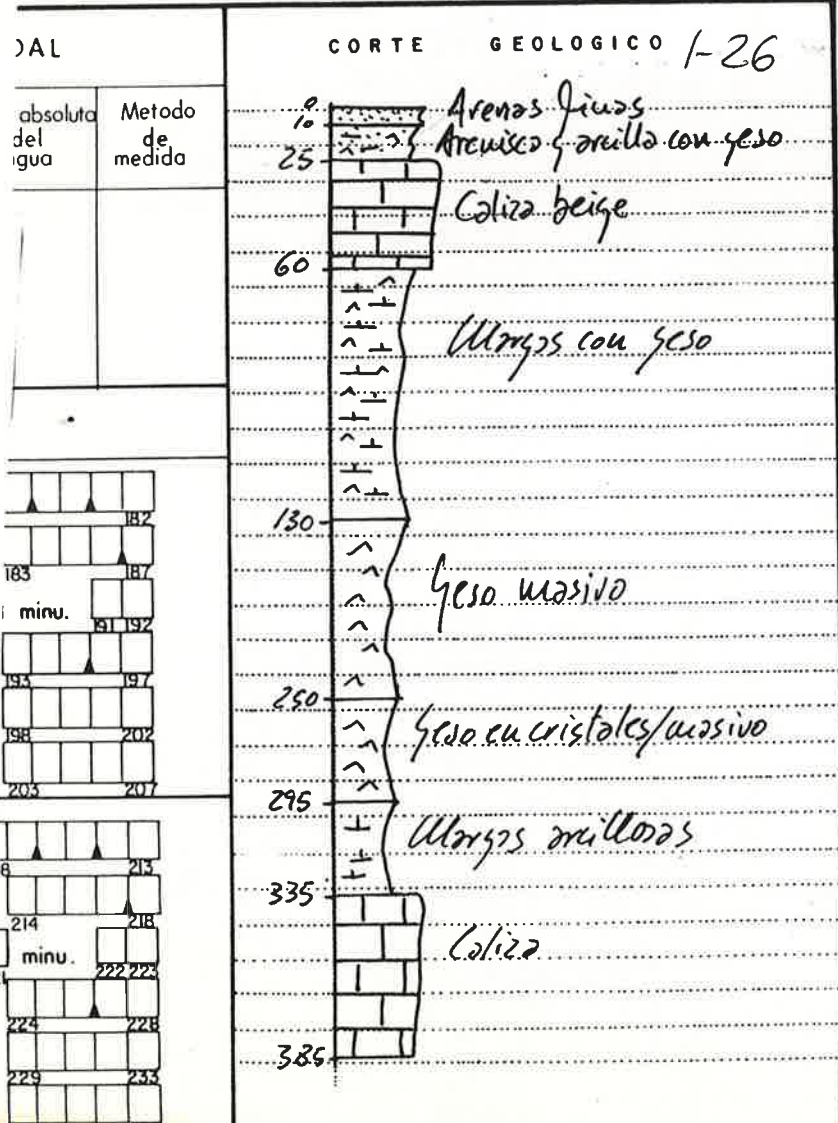 DAL
absoluta
del
agua
Metodo
de
medida
182
183 187
minu.
191 192
193 197
198 202
203 207
213
214 218
minu.
222 223
224 228
229 233
CORTE GEOLOGICO 1-26
0
Arenas finas
10
Arenisca y arcilla con yeso
25
Caliza beige
60
Margas con yeso
130
Yeso masivo
250
Yeso en cristales/masivo
295
Margas arcillosas
335
Caliza
385